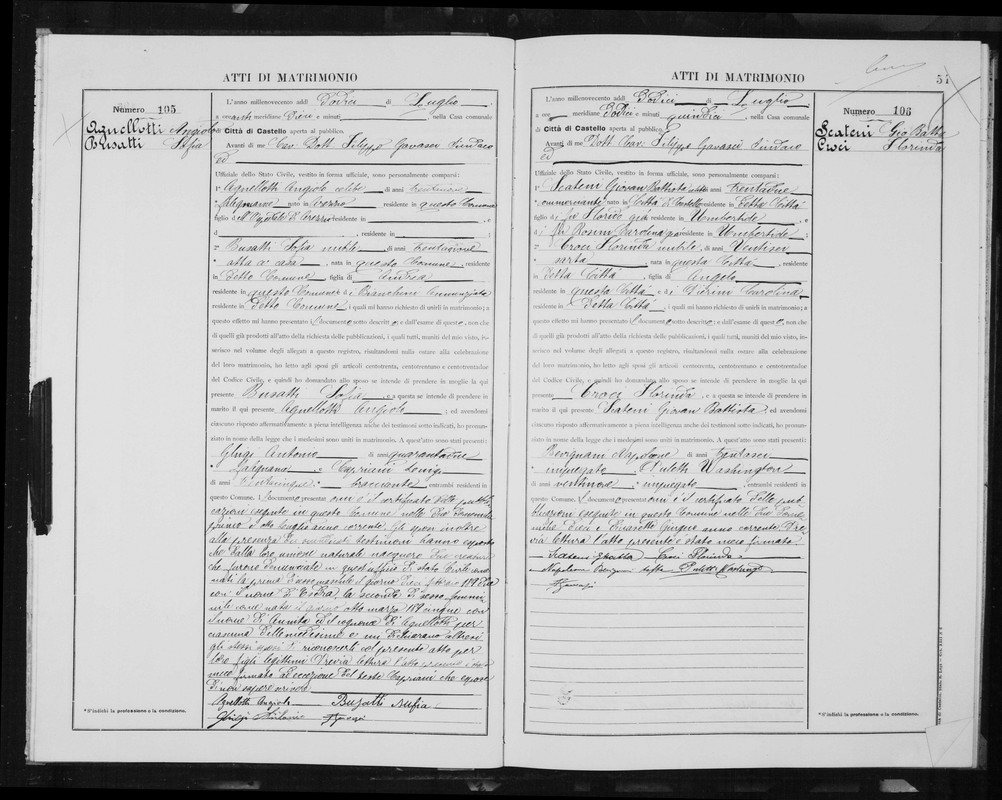 ATTI DI MATRIMONIO
Numero 105
Agnellotti Angiolo
Busatti Sofia
L'anno millenovecento addì Dodici di Luglio,
a ore anti meridiane Dieci e minuti , nella Casa comunale
di Città di Castello aperta al pubblico.
Avanti di me Cav. Dott. Filippo Gavasci Sindaco
ed
Uffiziale dello Stato Civile, vestito in forma uffiziale, sono personalmente comparsi:
1° Agnellotti Angiolo celibe, di anni trentanove
falegname nato in Arezzo residente in questo Comune
figlio di N. Ospitale di Arezzo residente in , e
d , residente in ;
2° Busatti Sofia nubile, di anni
atta a casa, nata in questo Comune, residente
in Detto Comune, figlia di Andrea
residente in questo Comune e di Bianchini Annunziata
residente in Detto Comune; i quali mi hanno richiesto di unirli in matrimonio; a
questo effetto mi hanno presentato il documento sotto descritto; e dall'esame di questo, non che
di quelli già prodotti all'atto della richiesta delle pubblicazioni, i quali tutti, muniti del mio visto, in-
serisco nel volume degli allegati a questo registro, risultandomi nulla ostare alla celebrazione
del loro matrimonio, ho letto agli sposi gli articoli centotrenta, centotrentuno e centotrentadue
del Codice Civile, e quindi ho domandato allo sposo se intende di prendere in moglie la qui
presente Busatti Sofia, e a questa se intende di prendere in
marito il qui presente Agnellotti Angiolo; ed avendomi
ciascuno risposto affermativamente a piena intelligenza anche dei testimoni sotto indicati, ho pronun-
ziato in nome della legge che i medesimi sono uniti in matrimonio. A quest'atto sono stati presenti:
Ghigi Antonio di anni quarantanove
falegname e Cipriani Luigi
di anni trentacinque, bracciante, entrambi residenti in
questo Comune. Il documento presentato è il certificato delle pubbli-
cazioni eseguite in questo Comune nelle due Domeniche
primo e otto luglio anno corrente. Gli sposi inoltre
alla presenza dei suddetti testimoni hanno esposto
che dalla loro unione naturale nacquero due creature
che furono denunciate in quest'ufficio di stato Civile come
nati la prima di sesso maschile il giorno
con il nome di , la seconda di sesso femmi-
nile come nata il giorno otto marzo con
il nome di Annita ed il cognome di Agnellotti per
ciascuna delle medesime e mi dichiarano altresì
gli stessi sposi di riconoscerli col presente atto per
loro figli legittimi. Previa lettura l'atto presente è stato
meco firmato ad eccezione del teste Cipriani che espose
di non sapere scrivere
Agnellotti Angiolo Busatti Sufia
Ghigi Antonio Gavasci
*S'indichi la professione o la condizione.
ATTI DI MATRIMONIO
51
Numero 106
Scateni Gio Batta
Croci Florinda
L'anno millenovecento addì Dodici di Luglio
a ore meridiane Dodici e minuti quindici, nella Casa comunale
di Città di Castello aperta al pubblico.
Avanti di me Dott. Cav. Filippo Gavasci Sindaco
ed
Uffiziale dello Stato Civile, vestito in forma uffiziale, sono personalmente comparsi:
1° Scateni Giovan Battista celibe, di anni trentatre
commerciante nato in Città di Castello residente in Detta Città
figlio di fu Florido già residente in Umbertide, e
di fu Rosini Carolina già residente in Umbertide;
2° Croci Florinda nubile, di anni Ventisei
sarta, nata in questa Città, residente
in Detta Città, figlia di Angelo
residente in questa Città e di Pierini Carolina
residente in Detta Città; i quali mi hanno richiesto di unirli in matrimonio; a
questo effetto mi hanno presentato il documento sotto descritto; e dall'esame di questo, non che
di quelli già prodotti all'atto della richiesta delle pubblicazioni, i quali tutti, muniti del mio visto,
inserisco nel volume degli allegati a questo registro, risultandomi nulla ostare alla celebrazione
del loro matrimonio, ho letto agli sposi gli articoli centotrenta, centotrentuno e centotrentadue
del Codice Civile, e quindi ho domandato allo sposo se intende di prendere in moglie la qui
presente Croci Florinda, e a questa se intende di prendere in
marito il qui presente Scateni Giovan Battista; ed avendomi
ciascuno risposto affermativamente a piena intelligenza anche dei testimoni sotto indicati, ho pronun-
ziato in nome della legge che i medesimi sono uniti in matrimonio. A quest'atto sono stati presenti:
Bevignani Napoleone di anni trentasei
impiegato, e Puletti Washington
di anni ventinove, impiegato, entrambi residenti in
questo Comune. Il documento presentato è il certificato delle pub-
blicazioni eseguite in questo Comune nelle due Dome-
niche Dieci e Diciasette Giugno anno corrente. Pre-
via lettura l'atto presente è stato meco firmato
Scateni Gio Batta Croci Florinda
Napoleone Bevignani teste Puletti Washington
Gavasci
*S'indichi la professione o la condizione.